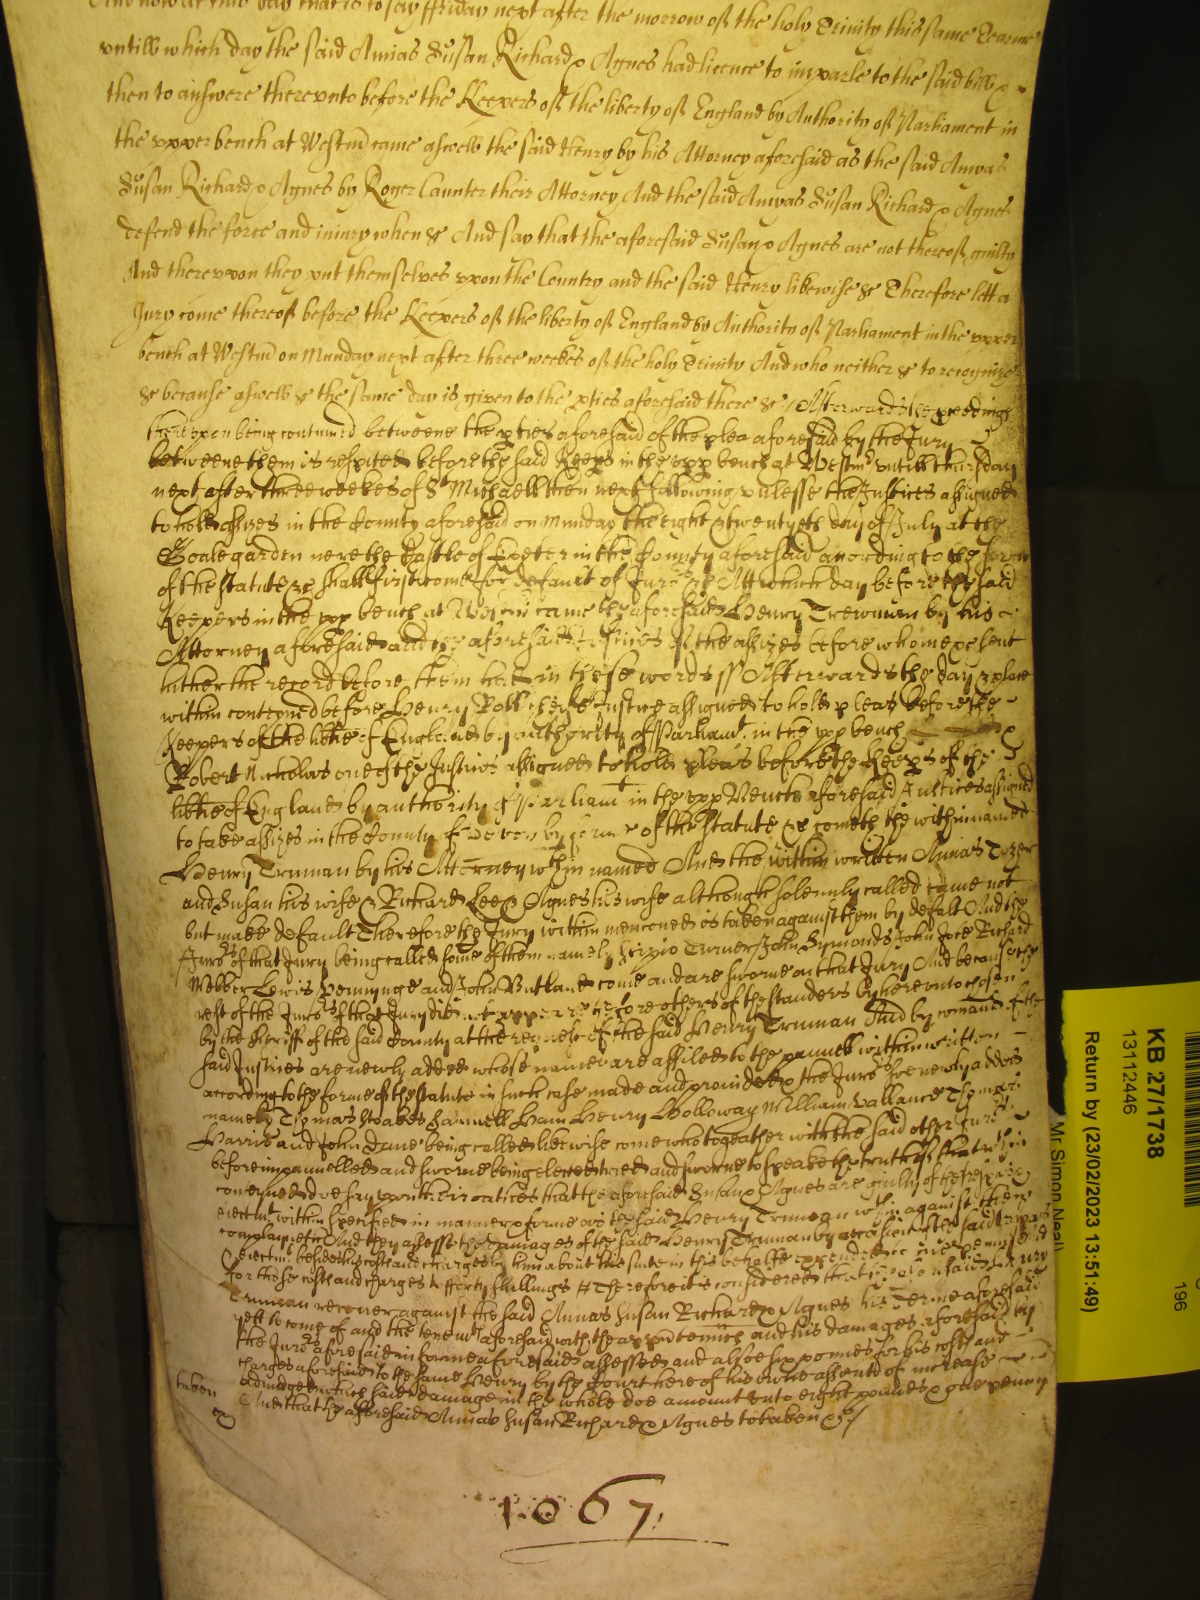 And now at this day that is to say ffriday next after the morrow off the holy Trinity this same Tearme
untill which day the said Amias Susan Richard & Agnes had licence to imparle to the said bill &
then to answere therevnto before the Keepers off the liberty off England by Authority off Parliament in
the vpper bench at Westm̃ came aswell the said Henry by his Attorney aforesaid as the said Amyas
Susan Richard & Agnes by Roger Caunter their Attorney And the said Amyas Susan Richard & Agnes
defend the force and iniury when &c And say that the aforesaid Susan & Agnes are not thereoff guilty
And therevpon they put themselves vpon the Country and the said Henry likewise &c Therefore lett a
Jury come thereoff before the Keepers off the liberty off England by Authority off Parliament in the vpper
bench at Westm̃ on Munday next after three weekes off the holy Trinity And who neither &c to recognize
&c because aswell &c the same day is given to the p̱ties aforesaid there &c / Afterwards the p̱ceedings
therevpon being continued betweene the p̱ties aforesaid of the plea aforesaid by the Jury
betweene them is respited before the said Keep̱s in the vpp̱ bench at Westm̃ vntill thursday
next after three weekes of St Michaell then next following vnlesse the Justices assigned
to hold assizes in the County aforesaid on Munday the eight & twentyeth day of July at the
Goale garden nere the Castle of Exeter in the County aforesaid according to the forme
of the statute &c shall first come for default of Jurrs &c Att which day before the said
Keepers in the vpp̱ bench at Westm̃ came the aforesaid Henry Trewman by his
Attorney aforesaid and the aforesaid Justices of the assizes before whome &c sent
hither the record before them had in these words ss Afterwards the day & place
within conteyned before Henry Rolle cheife Justice assigned to hold pleas before the
Keepers of the lib̃tie of England by authority of Parliamt in the vpp̱ bench &
Robert Nicholas one of the Justices assigned to hold pleas before the Keep̱s of the
lib̃tie of England by authority of Parliamt in the vpp̱ Bench aforesaid Justices assigned
to take assizes in the County of Devon by forme of the statute &c cometh the within named
Henry Truman by his Attorney wthin named And the within written Amias Tozer
and Susan his wife & Richard Lee & Agnes his wife although solemnly called came not
but made default Therefore the Jury within menconed is taken against them by defalt And the
Jurrs of that Jury being called some of them namely Scipio Turner John Symonds John Jose Richard
Webber Lewis Penninge and John Butland come and are sworne on that Jury And because the
rest of the Jurrs of that Jury did not appeare therefore others of the standers by hereunto chosen
by the Sheriff of the said County at the request of the said Henry Truman And by comand of the
said Justices are newly added whose names are affiled to the pannell within written
according to the forme of the statute in such case made and provided & the Jurrs soe newly added
namely Thomas Noakes Samuell Ham Henry Holloway William Vallance Thomas
Harris and John Dane being called likewise come who togeather with the said other Jurrs
before impannelled and sworne being elected tried and sworne to speake the truth of that wthin
conteyned doe say vpon their oathes that the aforesaid Susan & Agnes are guilty of the trespas
eiectmt within specified in manner & forme as the said Henry Truman wthin against them
complayneth And they assesse the damages of the said Henry Truman by occasion of the said trespas
& eiectmt besides his costs and charges by him about his suite in this behalfe expended to one penny And
for those costs and charges to forty shillings # Therefore it is considered that the aforesaid Henry
Truman recover against the said Amias Susan Richard & Agnes his Terme aforesaid
yett to come of and the tenemts aforesaid with the app̱tennces and his damages aforesaid by
the Jurrs aforesaid in forme aforesaid assessed and alsoe six pounds for his costs and
charges aforesaid to the same Henry by the Court here of his owne assente of increase
adiudged which said damages in the whole doe amount vnto eight pounds & one penny
taken And that the aforesaid Amias Susan Richard & Agnes be taken &c /
1067
KB 27/1738
13112446
Return by (23/02/2023 13:51:49)
Mr Simon Neal
196